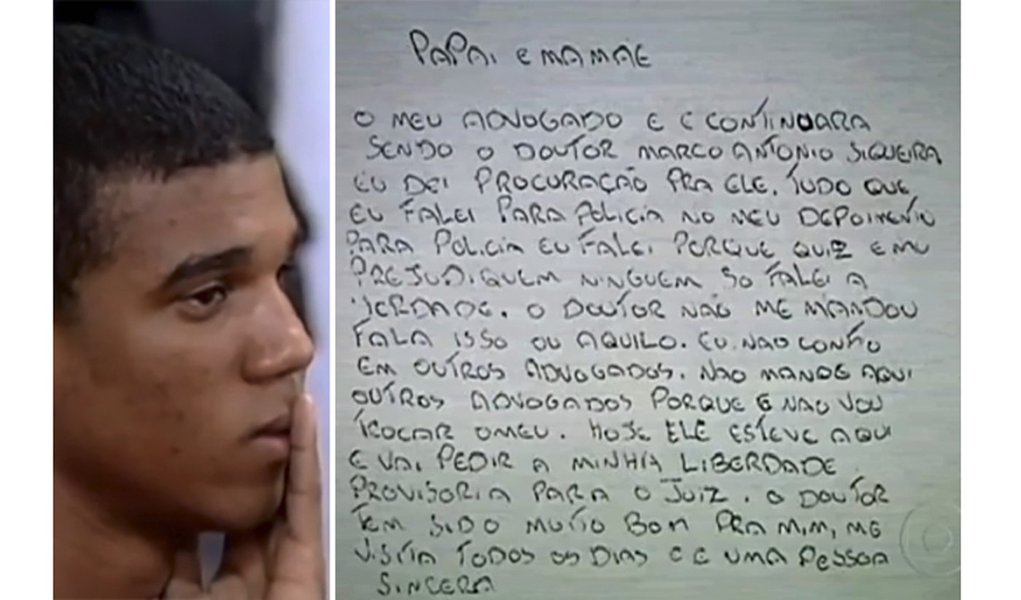 PAPAI E MAMAE
O MEU ADVOGADO E E CONTINUARA
SENDO O DOUTOR MARCO ANTONIO SIQUEIRA
EU DEI PROCURAÇÃO PRA ELE. TUDO QUE
EU FALEI PARA POLICIA NO MEU DEPOIMENTO
PARA POLICIA EU FALEI PORQUE QUIZ E NU
PREJUDIQUEM NINGUEM SO FALEI A
VERDADE. O DOUTOR NÃO ME MANDOU
FALA ISSO OU AQUILO. EU NAO CONFIO
EM OUTROS ADVOGADOS. NÃO MANDE AQUI
OUTROS ADVOGADOS PORQUE E NAO VOU
TROCAR O MEU. HOJE ELE ESTEVE AQUI
E VAI PEDIR A MINHA LIBERDADE
PROVISORIA PARA O JUIZ. O DOUTOR
TEM SIDO MUITO BOM PRA MIM, ME
VISITA TODOS OS DIAS E E UMA PESSOA
SINCERA